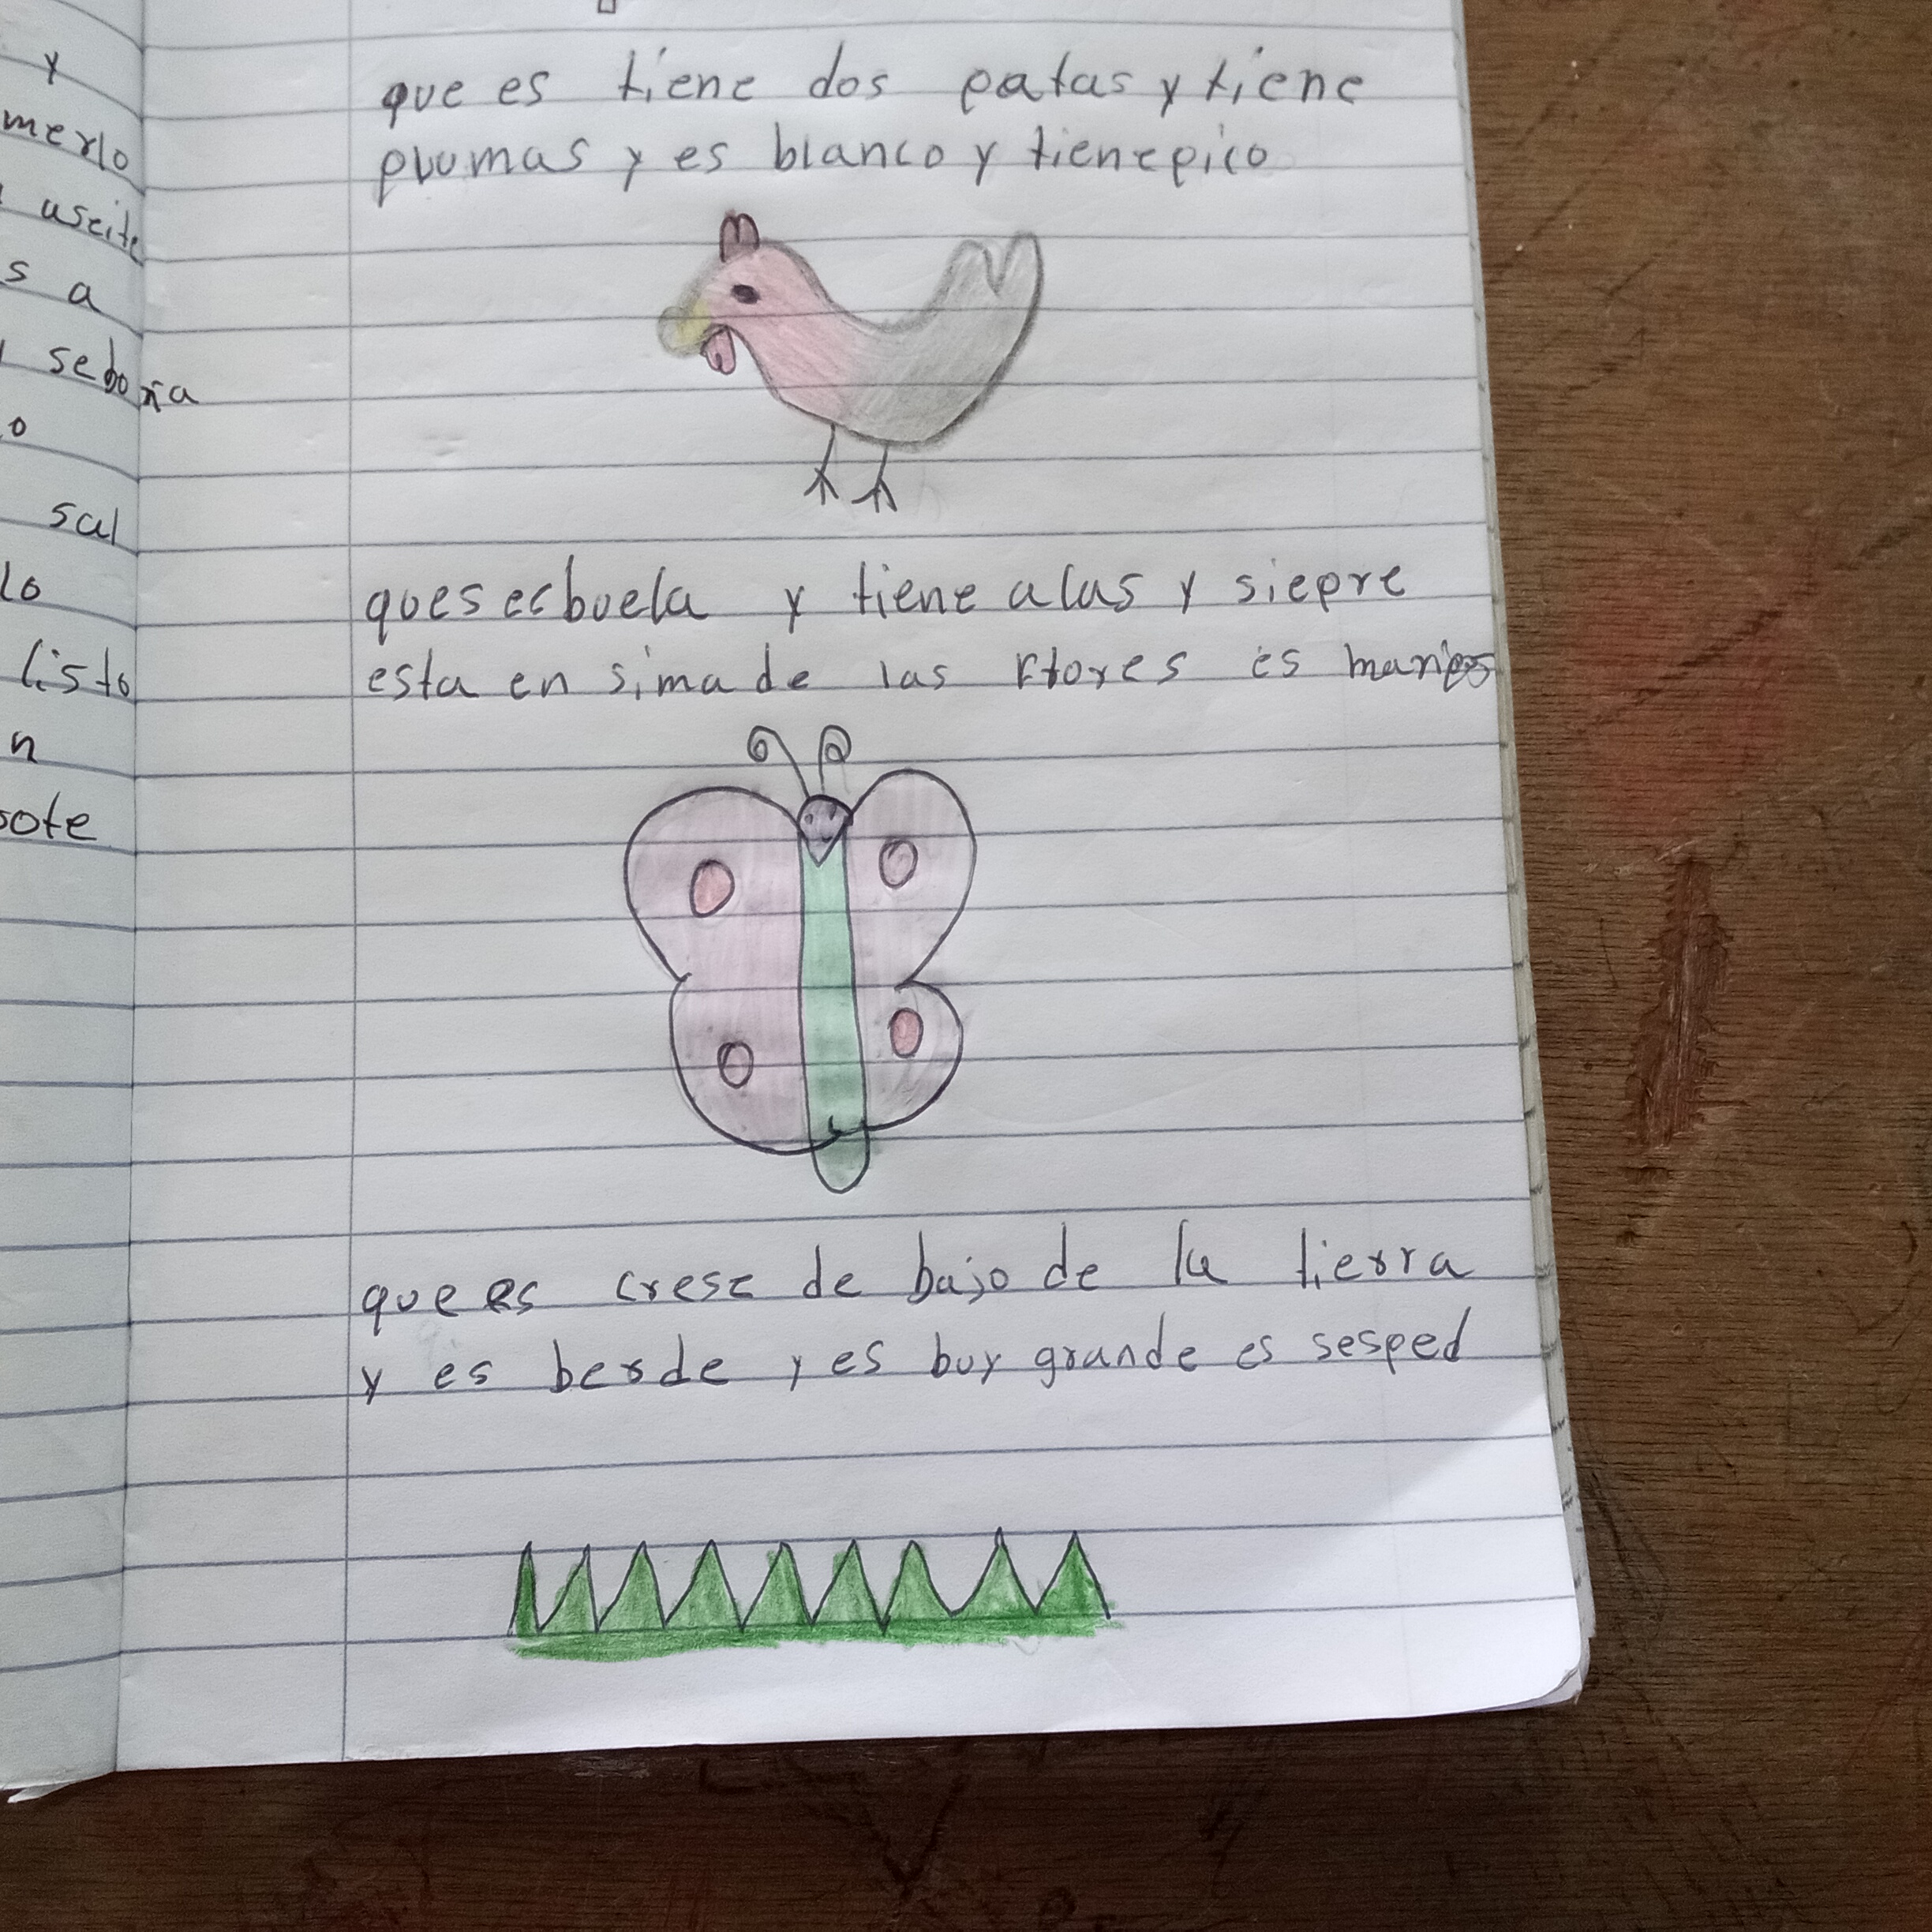 y
merlo
useite
s a
seboÿa
o
sal
lo
listo
n
sote
que es tiene dos patas y tiene
plumas y es blanco y tiene pico
ques esbuela y tiene alas y siepre
esta en sima de las flores es maripos
que es crese de bajo de la tierra
y es berde y es buy grande es sesped